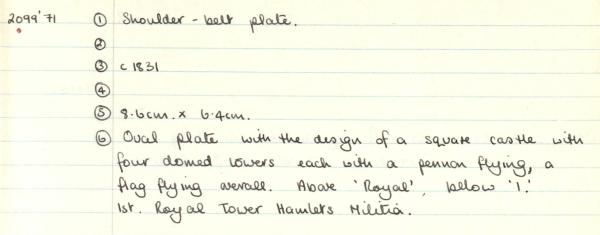 2099'71 ① Shoulder-belt plate.
②
③ c 1831
④
⑤ 8.6cm. x 6.4cm.
⑥ Oval plate with the design of a square castle with
four domed towers each with a pennon flying, a
flag flying overall. Above 'Royal', below '1.'
1st. Royal Tower Hamlets Militia.